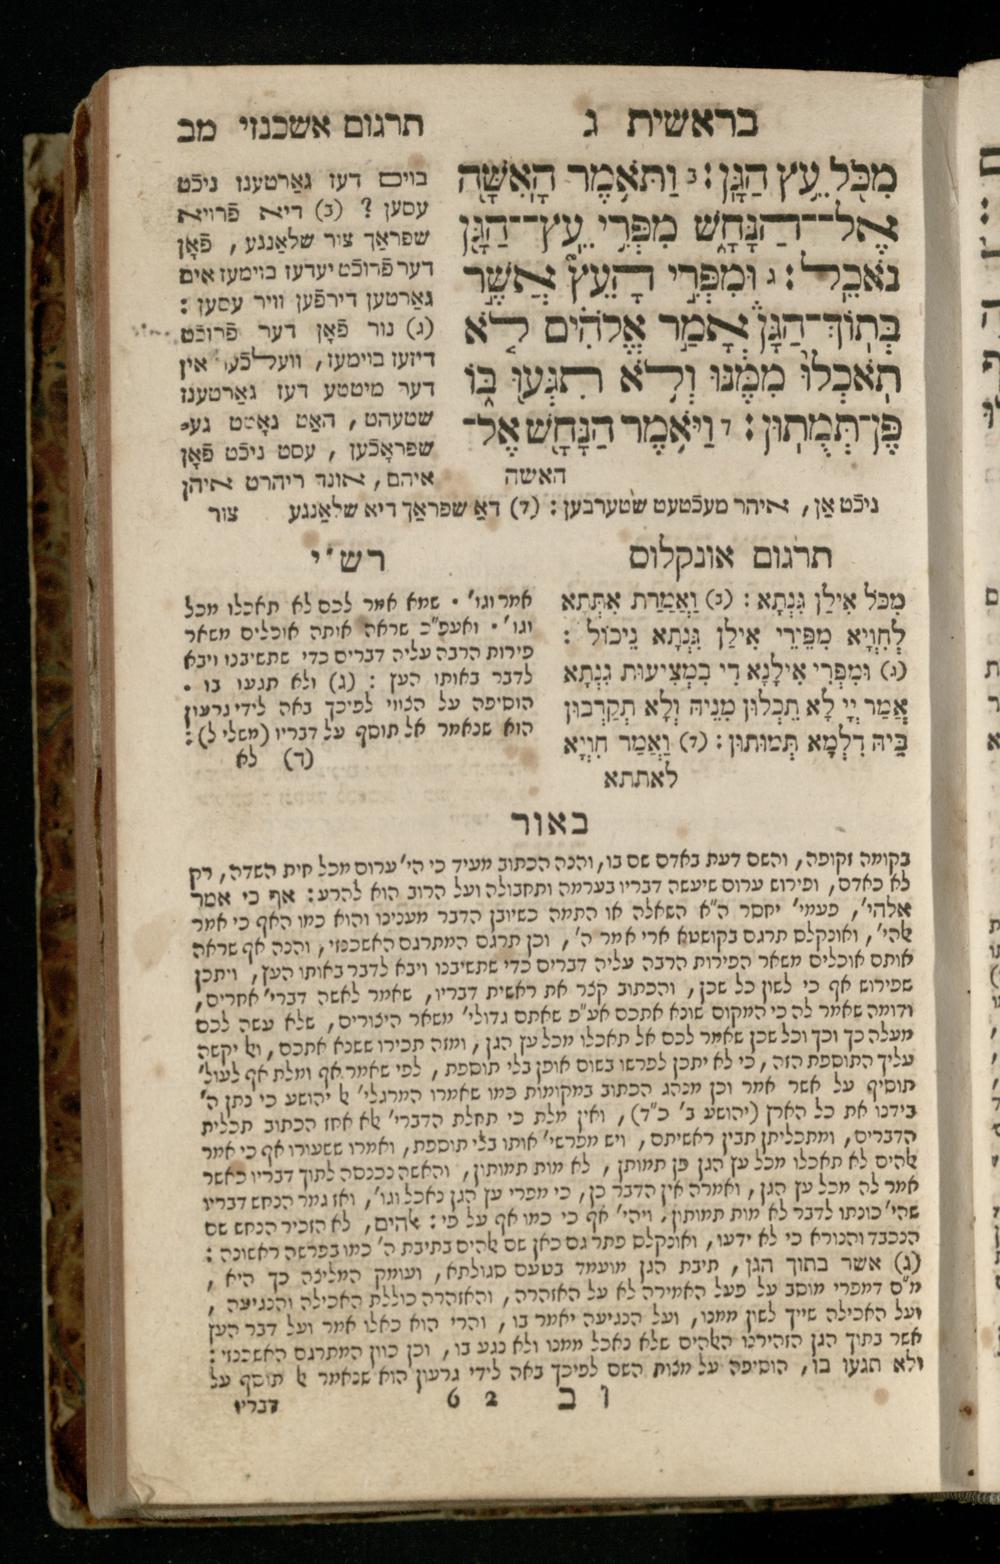 בראשית ג
תרגום אשכנזי מב
מִכֹּל עֵץ הַגָּן׃ ב וַתֹּאמֶר הָאִשָּׁה
אֶל־הַנָּחָשׁ מִפְּרִי עֵץ־הַגָּן
נֹאכֵל׃ ג וּמִפְּרִי הָעֵץ אֲשֶׁר
בְּתוֹךְ־הַגָּן אָמַר אֱלֹהִים לֹא
תֹאכְלוּ מִמֶּנּוּ וְלֹא תִגְּעוּ בּוֹ
פֶּן־תְּמֻתוּן׃ ד וַיֹּאמֶר הַנָּחָשׁ אֶל־
האשה
בוים דעז גאַרטענז ניכֿט
עסען ? (ב) דיא פֿרויא
שפראַך צור שלאַנגע , פֿאָן
דער פֿרוכֿט יעדעז בוימעז אים
גאַרטען דירפֿען וויר עסען :
(ג) נור פֿאָן דער פֿרוכֿט
דיזעז בוימעז, וועלכֿער אין
דער מיטטע דעז גאַרטענז
שטעהט, האַט גאָטט גע⸗
שפראָכֿען , עסט ניכֿט פֿאָן
איהם, אונד ריהרט איהן
ניכֿט אָן, איהר מעכֿטעט שטערבען : (ד) דאַ שפראַך דיא שלאַנגע צור
תרגום אונקלוס
מִכֹּל אִילַן גִּנְתָא : (ב) וַאֲמַרַת אִתְּתָא
לְחִוְיָא מִפֵּירֵי אִילַן גִּנְתָא נֵיכוֹל :
(ג) וּמִפֵּרֵי אִילָנָא דִי בִמְצִיעוּת גִנְתָא
אֲמַר יְיָ לָא תֵכְלוּן מִנֵּיהּ וְלָא תִקְרְבוּן
בֵּיהּ דִלְמָא תְּמוּתוּן : (ד) וַאֲמַר חִוְיָא
לאתתא
רש״י
אמר וגו׳ . שמא אמר לכם לא תאכלו מכל
וגו׳ . ואעפ״כ שראה אותה אוכלים משאר
פירות הרבה עליה דברים כדי שתשיבנו ויבא
לדבר באותו העץ : (ג) ולא תגעו בו .
הוסיפה על הצווי לפיכך באה לידי גרעון
הוא שנאמר אל תוסף על דבריו (משלי ל) :
(ד) לא
באור
בקומה זקופה, והשם דעת באדם שם בו, והנה הכתוב מעיד כי הי׳ ערום מכל חית השדה, רק
לא כאדם, ופירוש ערום שיעשה דבריו בערמה ותחבולה ועל הרוב הוא להרע : אף כי אמר
אלהי׳, פעמי׳ יחסר ה״א השאלה או התמה כשיובן הדבר מענינו והוא כמו האף כי אמר
ﭏהי׳, ואונקלס תרגם בקושטא ארי אמר ה׳, וכן תרגם המתרגם האשכנזי, והנה אף שראה
אותם אוכלים משאר הפירות הרבה עליה דברים כדי שתשיבנו ויבא לדבר באותו העץ, ויתכן
שפירוש אף כי לשון כל שכן, והכתוב קצר את ראשית דבריו, שאמר לאשה דברי׳ אחרים,
ודומה שאמר לה כי המקום שונא אתכם אע״פ שאתם גדולי׳ משאר היצורים, שלא עשה לכם
מעלה כך וכך וכל שכן שאמר לכם אל תאכלו מכל עץ הגן, ומזה תכירו ששנא אתכם, וﭏ יקשה
עליך התוספת הזה, כי לא יתכן לפרשו בשום אופן בלי תוספת, לפי שאמר אף ומלת אף לעול׳
תוסיף על אשר אמר וכן מנהג הכתוב במקומות כמו שאמרו המרגלי׳ ﭏ יהושע כי נתן ה׳
בידנו את כל הארץ (יהושע ב׳ כ״ד), ואין מלת כי תחלת הדברי׳ ﭏא אחז הכתוב תכלית
הדברים, ומתכליתן תבין ראשיתם, ויש מפרשי׳ אותו בלי תוספת, ואמרו ששעורו אף כי אמר
ﭏהים לא תאכלו מכל עץ הגן פן תמותן, לא מות תמותון, והאשה נכנסה לתוך דבריו כאשר
אמר לה מכל עץ הגן, ואמרה אין הדבר כן, כי מפרי עץ הגן נאכל וגו׳, ואז גמר הנחש דבריו
שהי׳ כונתו לדבר לא מות תמותון, ויהי׳ אף כי כמו אף על פי : ﭏהים, לא הזכיר הנחש שם
הנכבד והנורא כי לא ידעו, ואונקלס פתר גם כאן שם ﭏהים בתיבת ה׳ כמו בפרשה ראשונה :
(ג) אשר בתוך הגן, תיבת הגן מועמד בטעם סגולתא, ועומק המליצה כך היא,
מ״ם דמפרי מוסב על פעל האמירה לא על האזהרה, והאזהרה כוללת האכילה והנגיעה,
ועל האכילה שייך לשון ממנו, ועל הנגיעה יאמר בו, והרי הוא כאלו אמר ועל דבר העץ
אשר בתוך הגן הזהירנו הﭏהים שלא נאכל ממנו ולא נגע בו, וכן כוון המתרגם האשכנזי :
ולא תגעו בו, הוסיפה על מצות השם לפיכך באה לידי גרעון הוא שנאמר ﭏ תוסף על
ו ב 2 6 דבריו